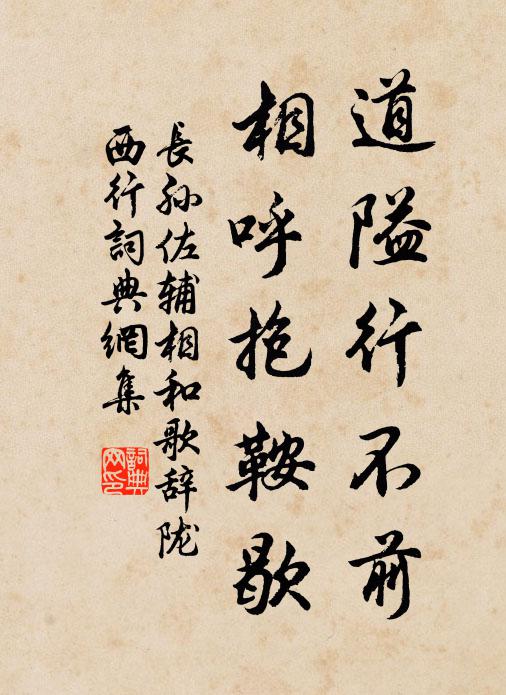 道隘行不前
相呼抱鞍歇
長孙佐辅相和歌辞陇
西行詞典網集
詞典
网印